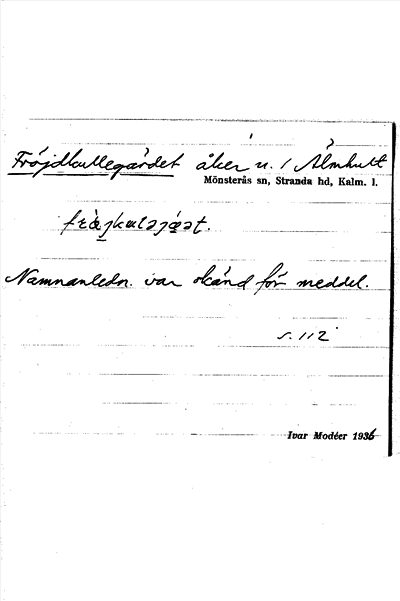 Fröjdkullegärdet åker u. / Älmhult
Mönsterås sn, Stranda hd, Kalm. l.
Namnanledn. var okänd för meddel.
s. 112
Ivar Modéer 1936